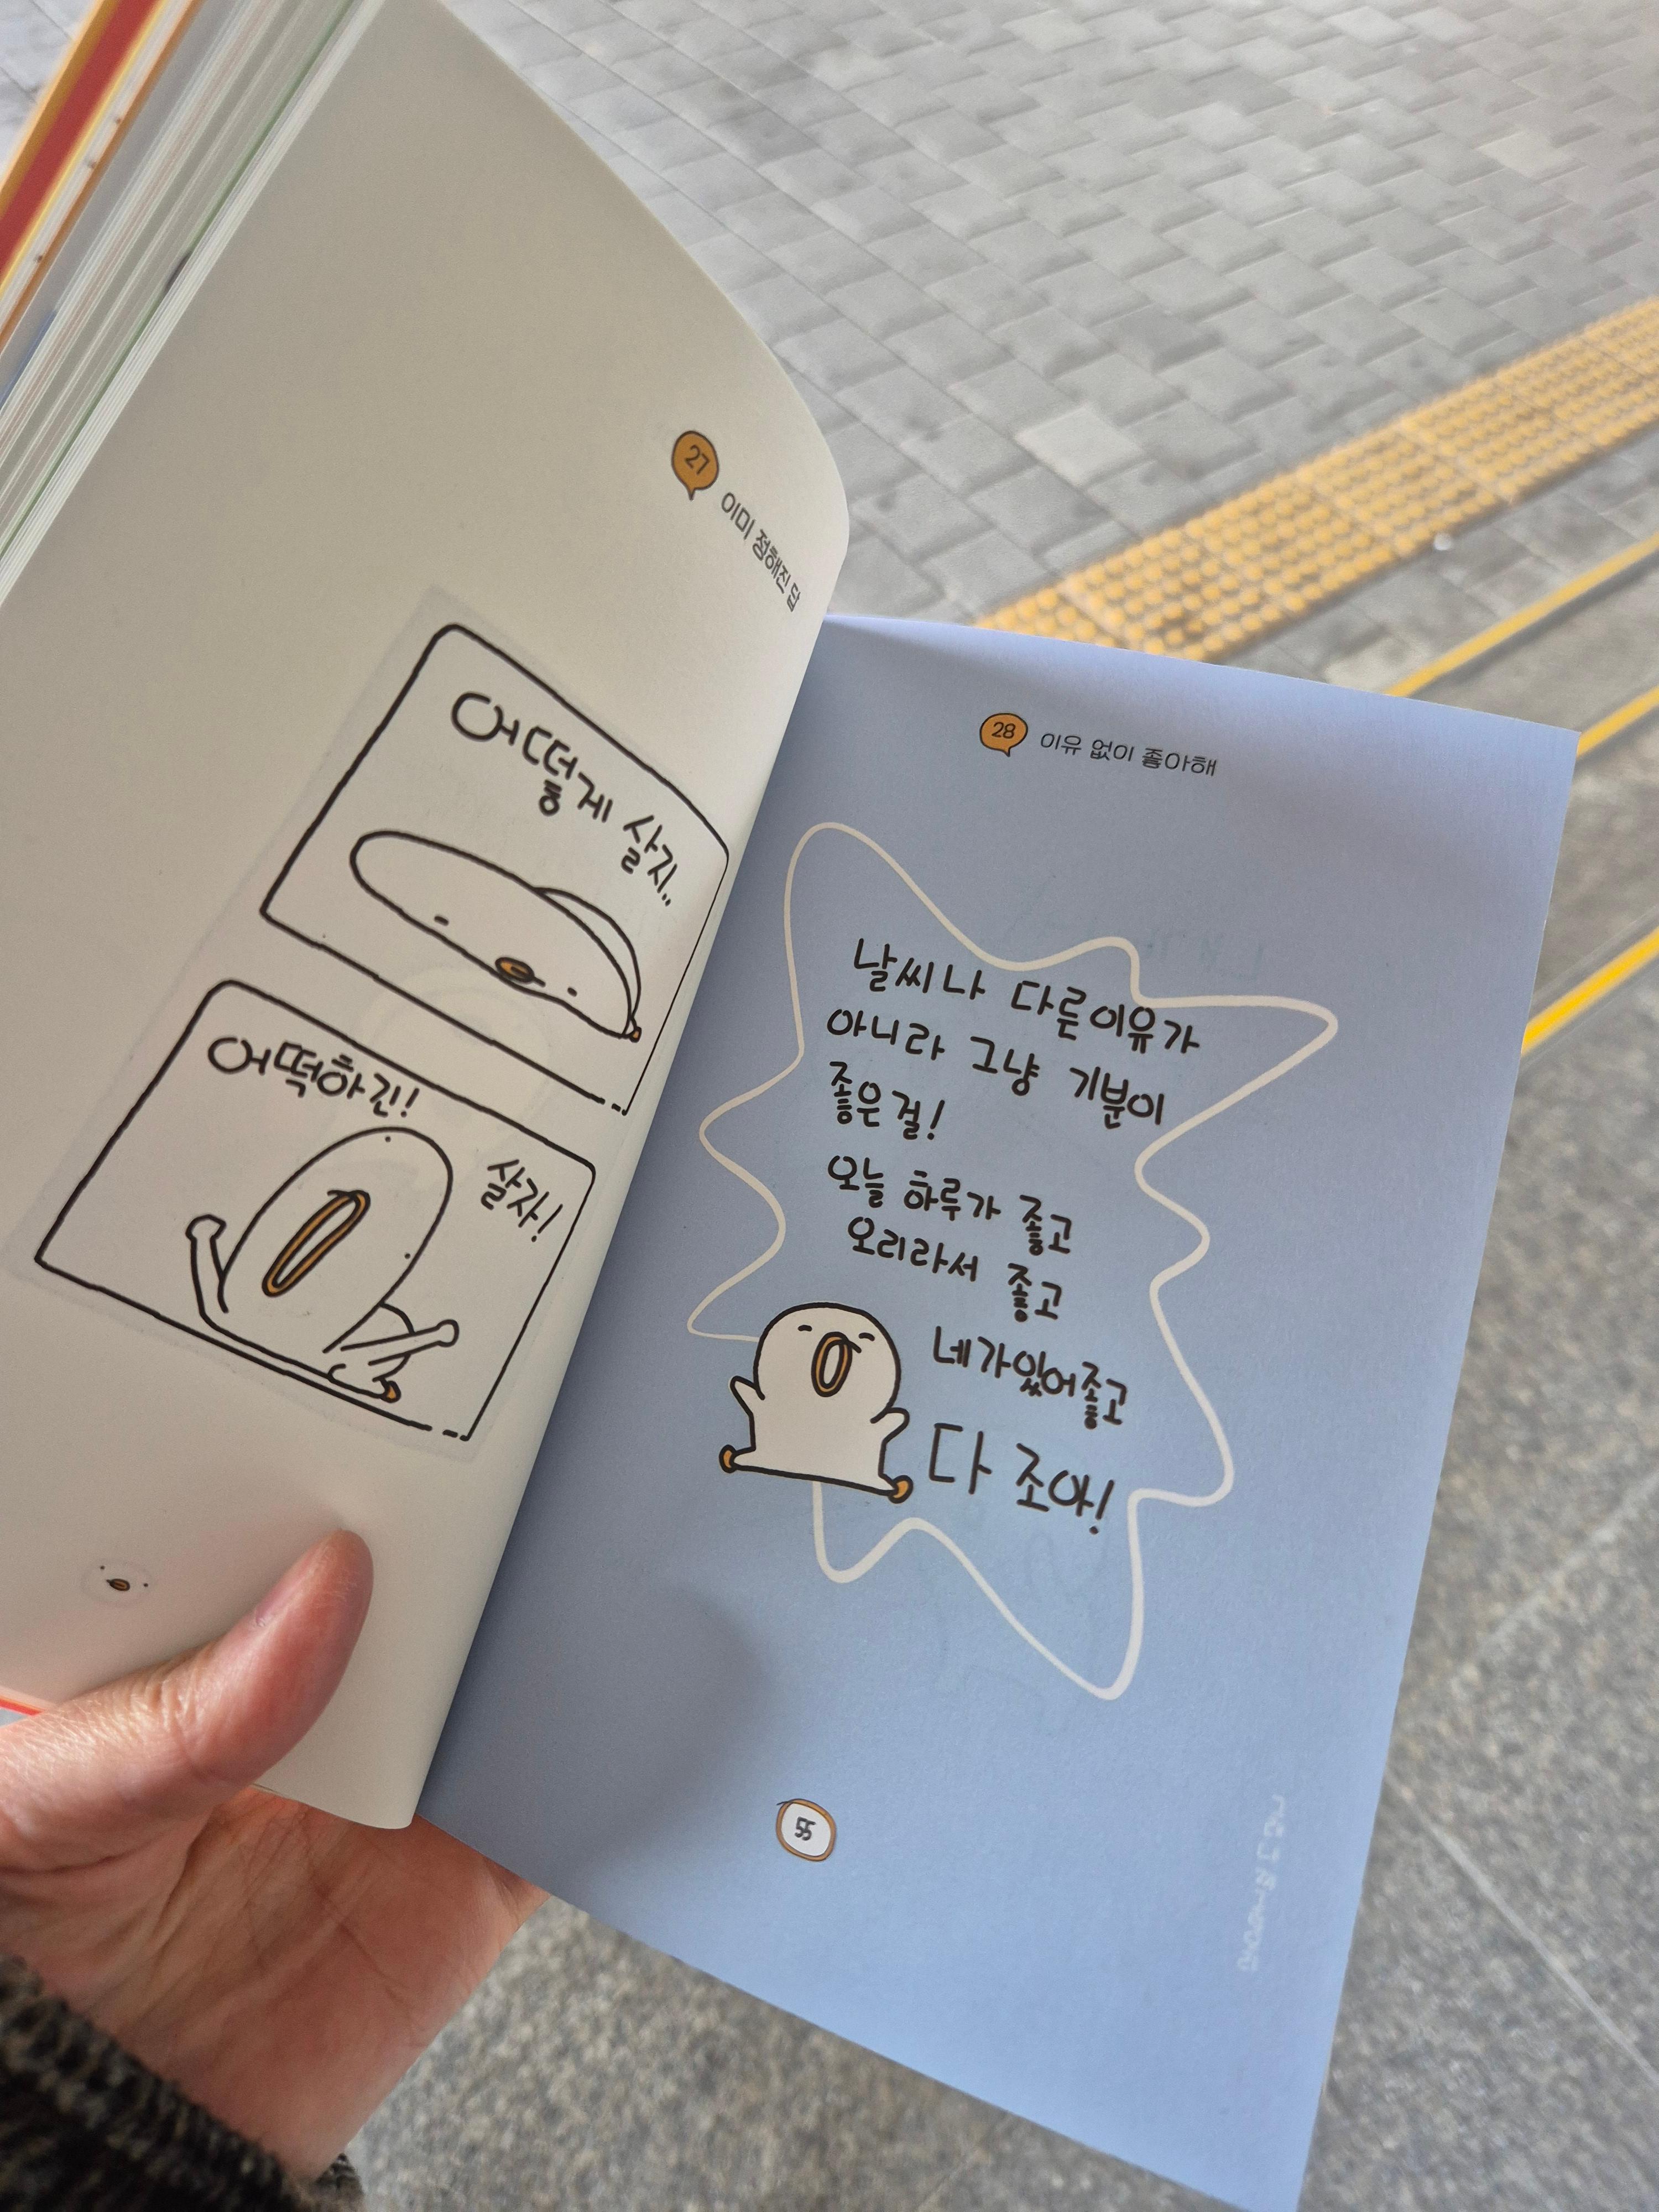 27 이미 정해진 답
어떻게 살지..
어떡하긴!
살자!
28 이유 없이 좋아해
날씨나 다른이유가
아니라 그냥 기분이
좋은걸!
오늘 하루가 좋고
오리라서 좋고
네가있어좋고
다 조아!
55